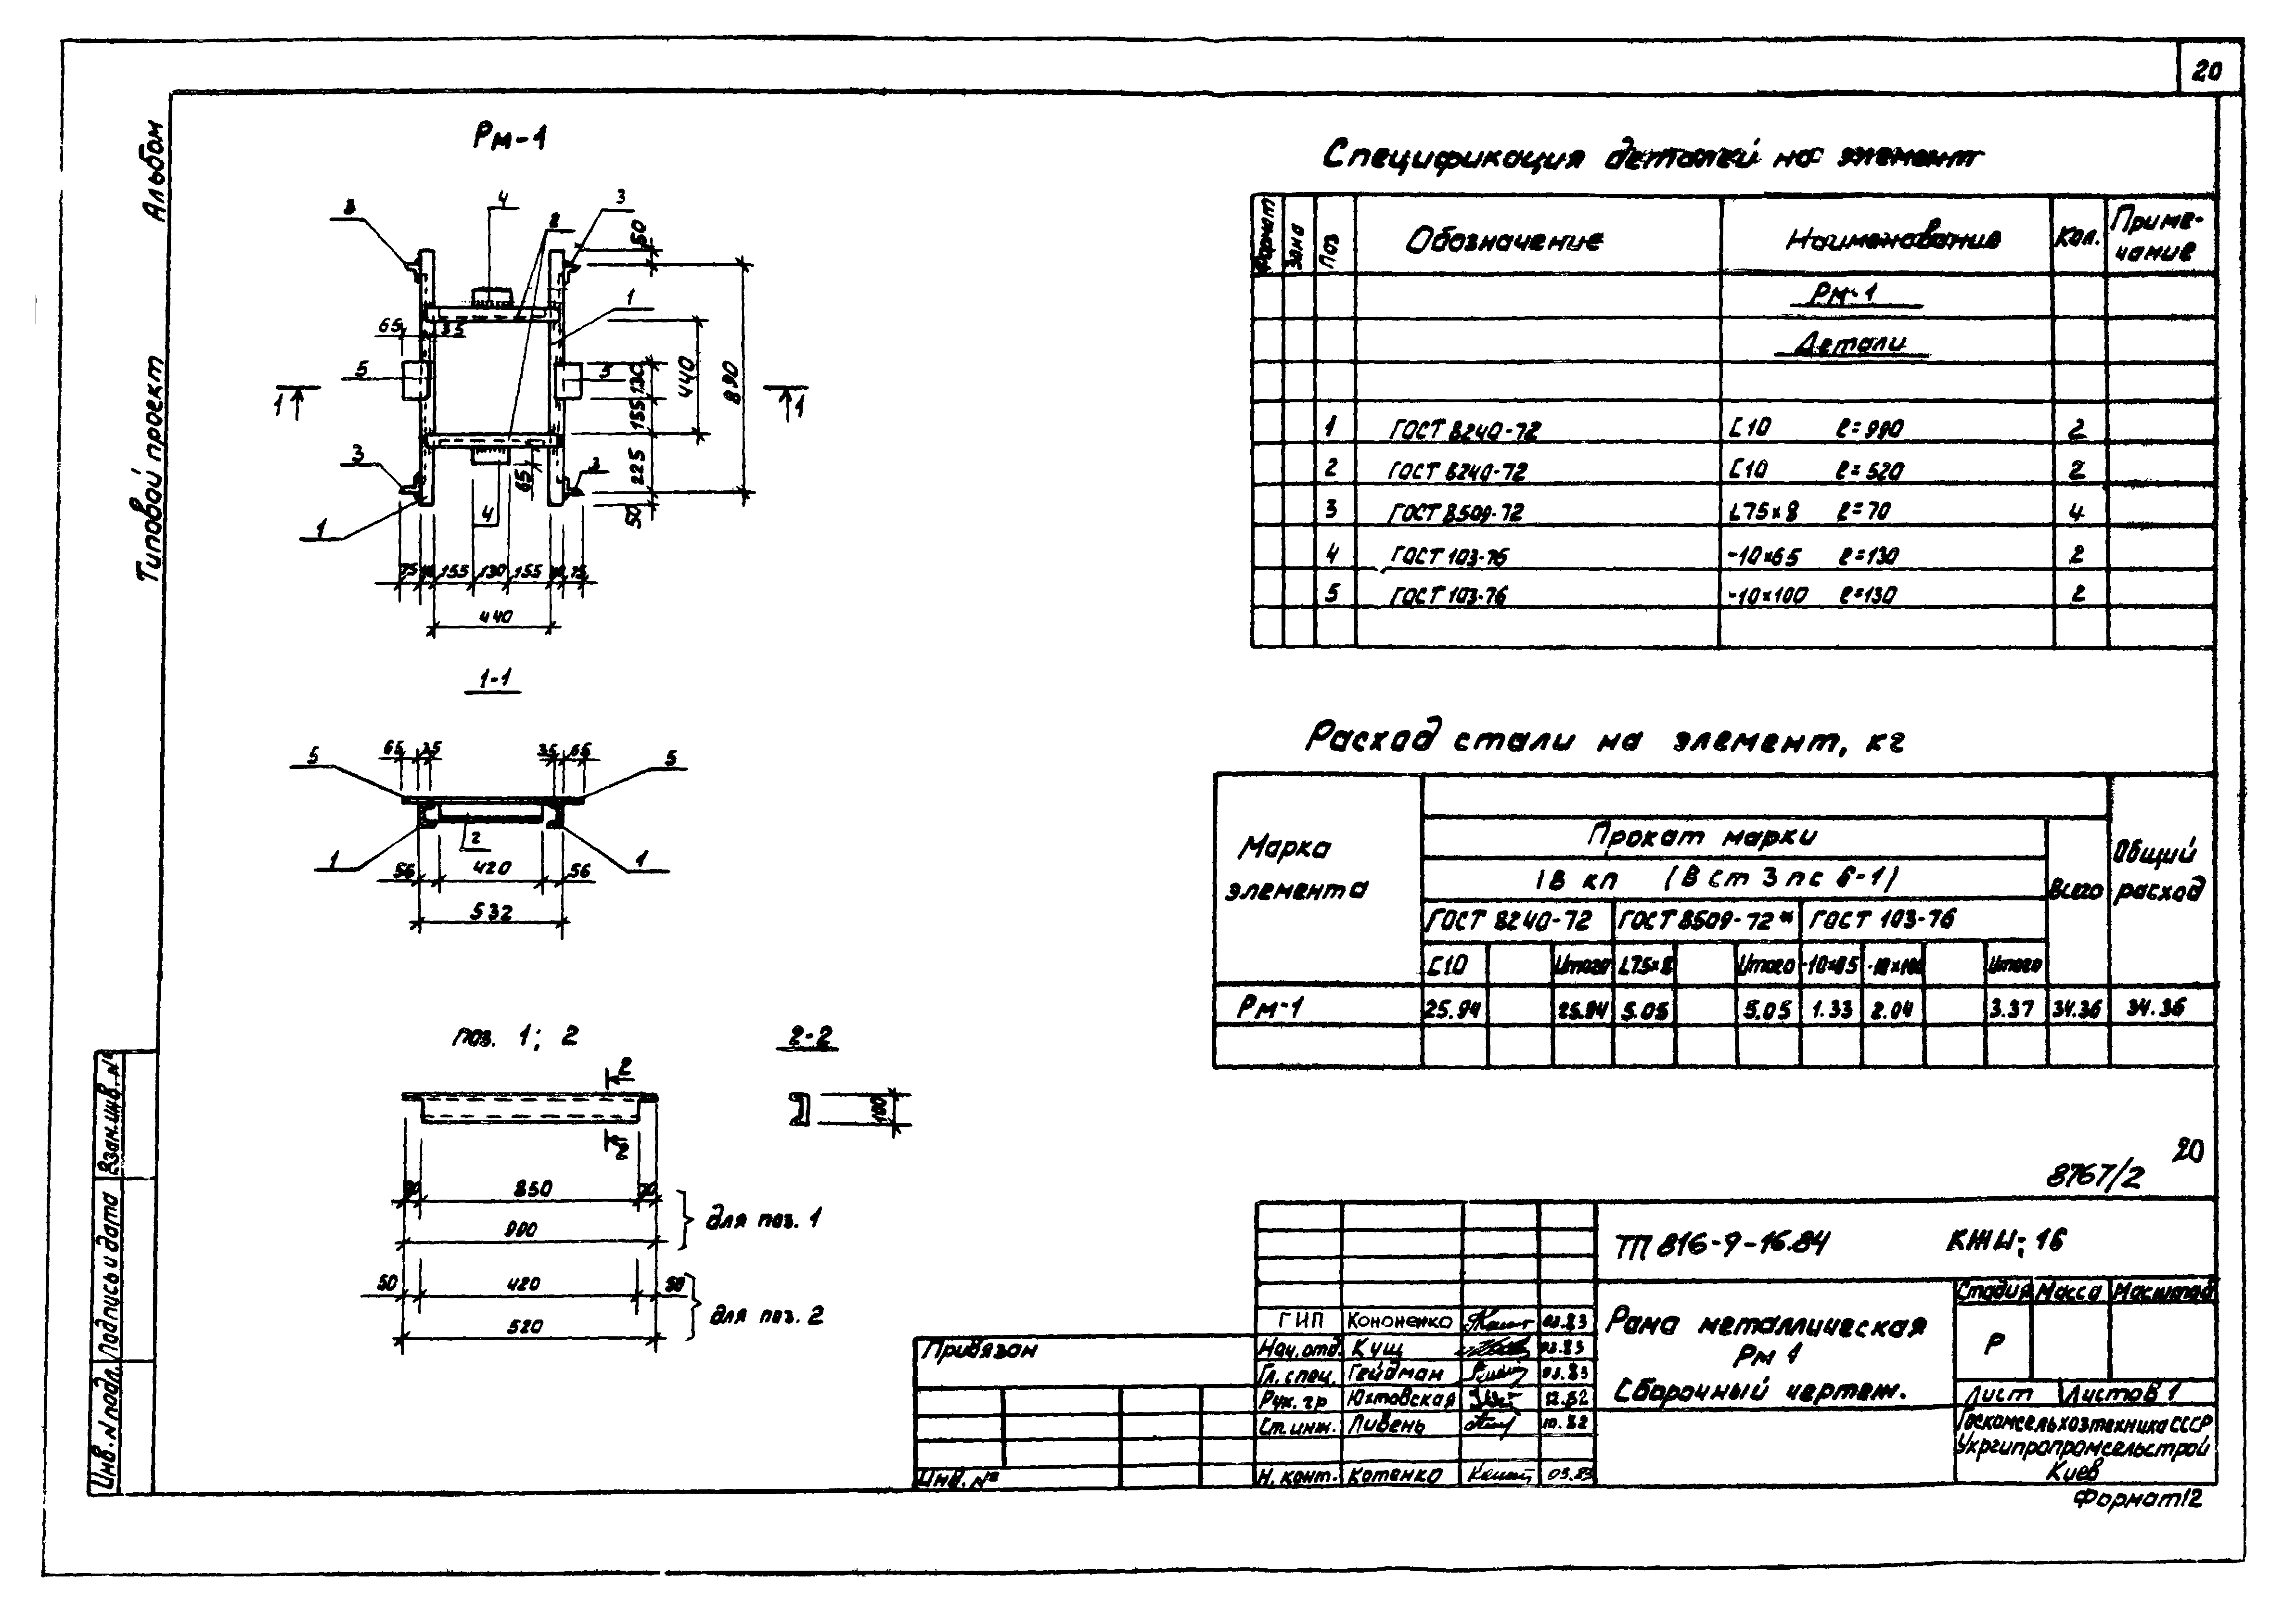 20
Альбом
Типовой проект
Рм-1
3
4
2
3
50
1
65
35
5
5
130
440
890
1
1
155
3
225
65
3
4
50
1
75
155
130
155
75
440
1-1
65
35
35
65
5
5
1
2
1
56
420
56
532
поз. 1; 2
2-2
2
2
100
70
850
70
990
для поз. 1
50
420
50
520
для поз. 2
Спецификация деталей на элемент
Формат Зона Поз Обозначение Наименование Кол. Приме-
чание
Рм-1
Детали
1 ГОСТ 8240-72 С10 ℓ=990 2
2 ГОСТ 8240-72 С10 ℓ=520 2
3 ГОСТ 8509-72 L75×8 ℓ=70 4
4 ГОСТ 103-76 -10×65 ℓ=130 2
5 ГОСТ 103-76 -10×100 ℓ=130 2
Расход стали на элемент, кг
Марка
элемента
Прокат марки
18 кп (В ст 3 пс 6-1)
Всего
Общий
расход
ГОСТ 8240-72 ГОСТ 8509-72* ГОСТ 103-76
С10 Итого L75×8 Итого -10×65 -10×100 Итого
Рм-1 25.94 25.94 5.05 5.05 1.33 2.04 3.37 34.36 34.36
20
8767/2
ТП 816-9-16.84 КЖИ; 16
Рама металлическая
Рм 1
Сборочный чертеж.
Стадия Масса Масштаб
Р
Лист Листов 1
Госкомсельхозтехника СССР
Укргипропромсельстрой
Киев
Формат12
ГИП Кононенко 03.83
Нач. отд. Кущ 03.83
Гл. спец. Гейдман 03.83
Рук. гр Юхтовская 12.82
Ст. инж. Ливень 10.82
Н. конт. Котенко 03.83
Привязан
Инв. №
Взам. инв. №
Подпись и дата
Инв. N подл.